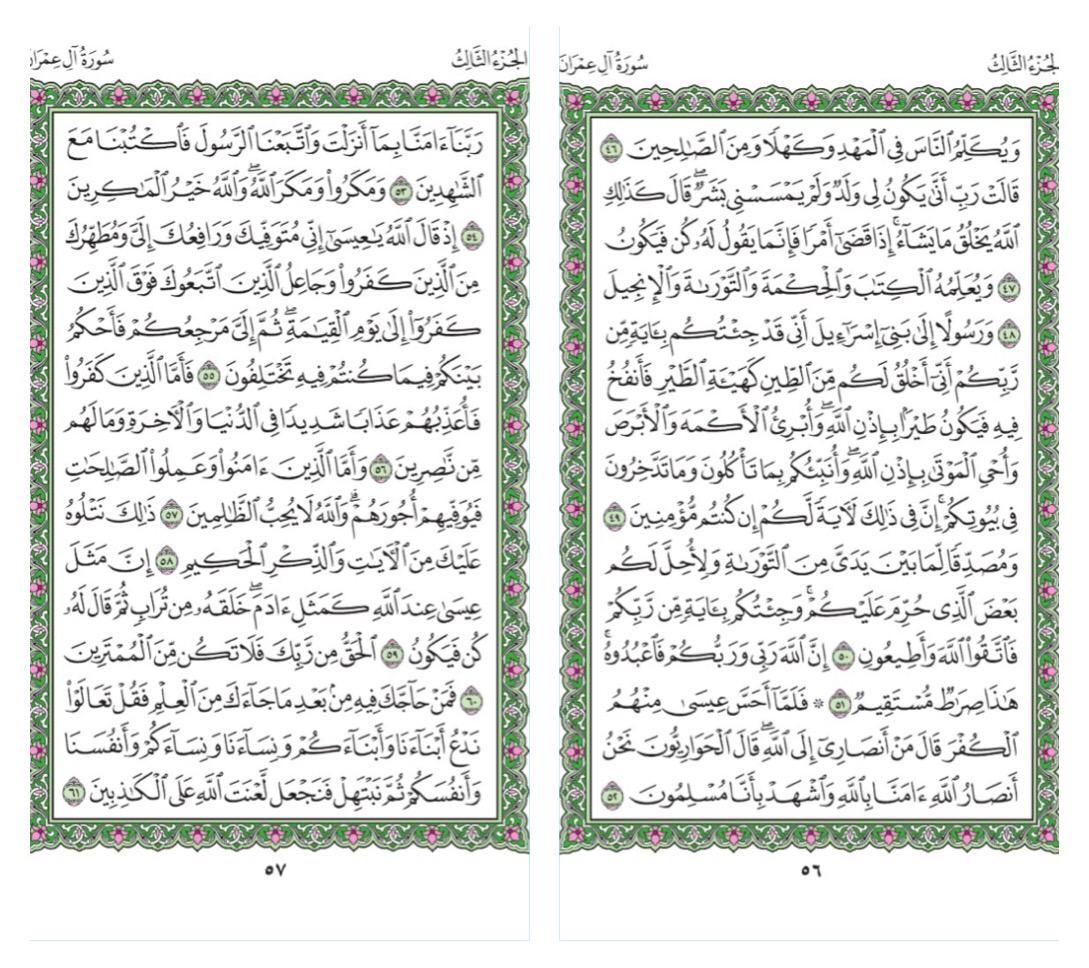 الجُزْءُ الثَّالِثُ سُورَةُ آلِ عِمْرَانَ
وَيُكَلِّمُ ٱلنَّاسَ فِى ٱلْمَهْدِ وَكَهْلًا وَمِنَ ٱلصَّٰلِحِينَ ٤٦
قَالَتْ رَبِّ أَنَّىٰ يَكُونُ لِى وَلَدٌ وَلَمْ يَمْسَسْنِى بَشَرٌۖ قَالَ كَذَٰلِكِ
ٱللَّهُ يَخْلُقُ مَا يَشَآءُۚ إِذَا قَضَىٰٓ أَمْرًا فَإِنَّمَا يَقُولُ لَهُۥ كُن فَيَكُونُ
٤٧ وَيُعَلِّمُهُ ٱلْكِتَٰبَ وَٱلْحِكْمَةَ وَٱلتَّوْرَىٰةَ وَٱلْإِنجِيلَ
٤٨ وَرَسُولًا إِلَىٰ بَنِىٓ إِسْرَٰٓءِيلَ أَنِّى قَدْ جِئْتُكُم بِـَٔايَةٍ مِّن
رَّبِّكُمْ أَنِّىٓ أَخْلُقُ لَكُم مِّنَ ٱلطِّينِ كَهَيْـَٔةِ ٱلطَّيْرِ فَأَنفُخُ
فِيهِ فَيَكُونُ طَيْرًۢا بِإِذْنِ ٱللَّهِۖ وَأُبْرِئُ ٱلْأَكْمَهَ وَٱلْأَبْرَصَ
وَأُحْىِ ٱلْمَوْتَىٰ بِإِذْنِ ٱللَّهِۖ وَأُنَبِّئُكُم بِمَا تَأْكُلُونَ وَمَا تَدَّخِرُونَ
فِى بُيُوتِكُمْۚ إِنَّ فِى ذَٰلِكَ لَـَٔايَةً لَّكُمْ إِن كُنتُم مُّؤْمِنِينَ ٤٩
وَمُصَدِّقًا لِّمَا بَيْنَ يَدَىَّ مِنَ ٱلتَّوْرَىٰةِ وَلِأُحِلَّ لَكُم
بَعْضَ ٱلَّذِى حُرِّمَ عَلَيْكُمْۚ وَجِئْتُكُم بِـَٔايَةٍ مِّن رَّبِّكُمْ
فَٱتَّقُوا۟ ٱللَّهَ وَأَطِيعُونِ ٥٠ إِنَّ ٱللَّهَ رَبِّى وَرَبُّكُمْ فَٱعْبُدُوهُۚ
هَٰذَا صِرَٰطٌ مُّسْتَقِيمٌ ٥١ ۞ فَلَمَّآ أَحَسَّ عِيسَىٰ مِنْهُمُ
ٱلْكُفْرَ قَالَ مَنْ أَنصَارِىٓ إِلَى ٱللَّهِۖ قَالَ ٱلْحَوَارِيُّونَ نَحْنُ
أَنصَارُ ٱللَّهِ ءَامَنَّا بِٱللَّهِ وَٱشْهَدْ بِأَنَّا مُسْلِمُونَ ٥٢
٥٦
الجُزْءُ الثَّالِثُ سُورَةُ آلِ عِمْرَانَ
رَبَّنَآ ءَامَنَّا بِمَآ أَنزَلْتَ وَٱتَّبَعْنَا ٱلرَّسُولَ فَٱكْتُبْنَا مَعَ
ٱلشَّٰهِدِينَ ٥٣ وَمَكَرُوا۟ وَمَكَرَ ٱللَّهُۖ وَٱللَّهُ خَيْرُ ٱلْمَٰكِرِينَ
٥٤ إِذْ قَالَ ٱللَّهُ يَٰعِيسَىٰٓ إِنِّى مُتَوَفِّيكَ وَرَافِعُكَ إِلَىَّ وَمُطَهِّرُكَ
مِنَ ٱلَّذِينَ كَفَرُوا۟ وَجَاعِلُ ٱلَّذِينَ ٱتَّبَعُوكَ فَوْقَ ٱلَّذِينَ
كَفَرُوٓا۟ إِلَىٰ يَوْمِ ٱلْقِيَٰمَةِۖ ثُمَّ إِلَىَّ مَرْجِعُكُمْ فَأَحْكُمُ
بَيْنَكُمْ فِيمَا كُنتُمْ فِيهِ تَخْتَلِفُونَ ٥٥ فَأَمَّا ٱلَّذِينَ كَفَرُوا۟
فَأُعَذِّبُهُمْ عَذَابًا شَدِيدًا فِى ٱلدُّنْيَا وَٱلْـَٔاخِرَةِ وَمَا لَهُم
مِّن نَّٰصِرِينَ ٥٦ وَأَمَّا ٱلَّذِينَ ءَامَنُوا۟ وَعَمِلُوا۟ ٱلصَّٰلِحَٰتِ
فَيُوَفِّيهِمْ أُجُورَهُمْۗ وَٱللَّهُ لَا يُحِبُّ ٱلظَّٰلِمِينَ ٥٧ ذَٰلِكَ نَتْلُوهُ
عَلَيْكَ مِنَ ٱلْـَٔايَٰتِ وَٱلذِّكْرِ ٱلْحَكِيمِ ٥٨ إِنَّ مَثَلَ
عِيسَىٰ عِندَ ٱللَّهِ كَمَثَلِ ءَادَمَۖ خَلَقَهُۥ مِن تُرَابٍ ثُمَّ قَالَ لَهُۥ
كُن فَيَكُونُ ٥٩ ٱلْحَقُّ مِن رَّبِّكَ فَلَا تَكُن مِّنَ ٱلْمُمْتَرِينَ
٦٠ فَمَنْ حَآجَّكَ فِيهِ مِنۢ بَعْدِ مَا جَآءَكَ مِنَ ٱلْعِلْمِ فَقُلْ تَعَالَوْا۟
نَدْعُ أَبْنَآءَنَا وَأَبْنَآءَكُمْ وَنِسَآءَنَا وَنِسَآءَكُمْ وَأَنفُسَنَا
وَأَنفُسَكُمْ ثُمَّ نَبْتَهِلْ فَنَجْعَل لَّعْنَتَ ٱللَّهِ عَلَى ٱلْكَٰذِبِينَ ٦١
٥٧